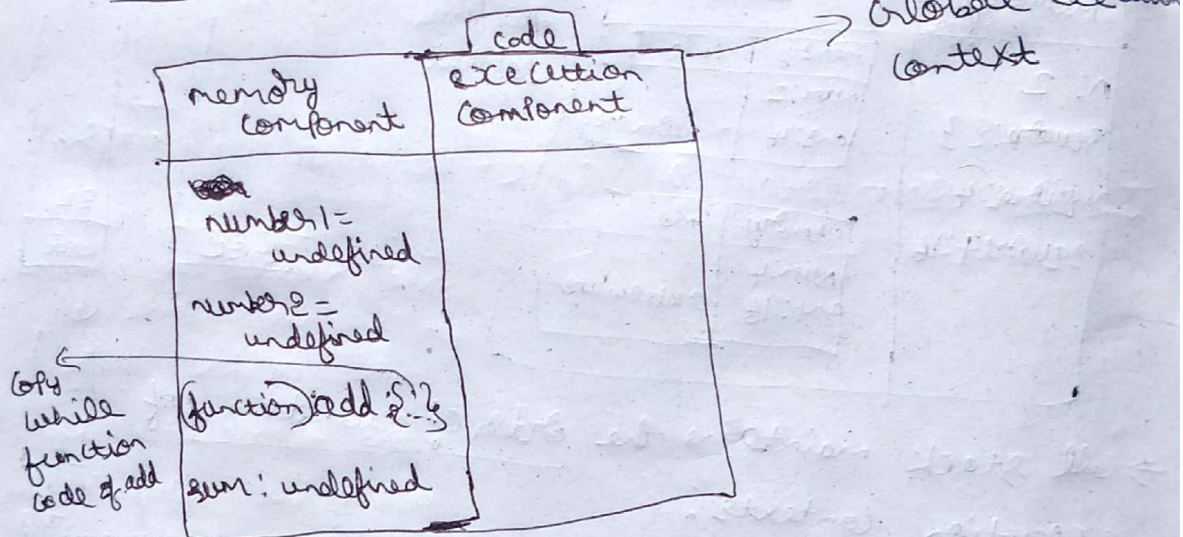 code
Global
context
memory
component
execution
component
number1=
undefined
number2=
undefined
(function) add {...}
sum: undefined
Copy
while
function
code of add